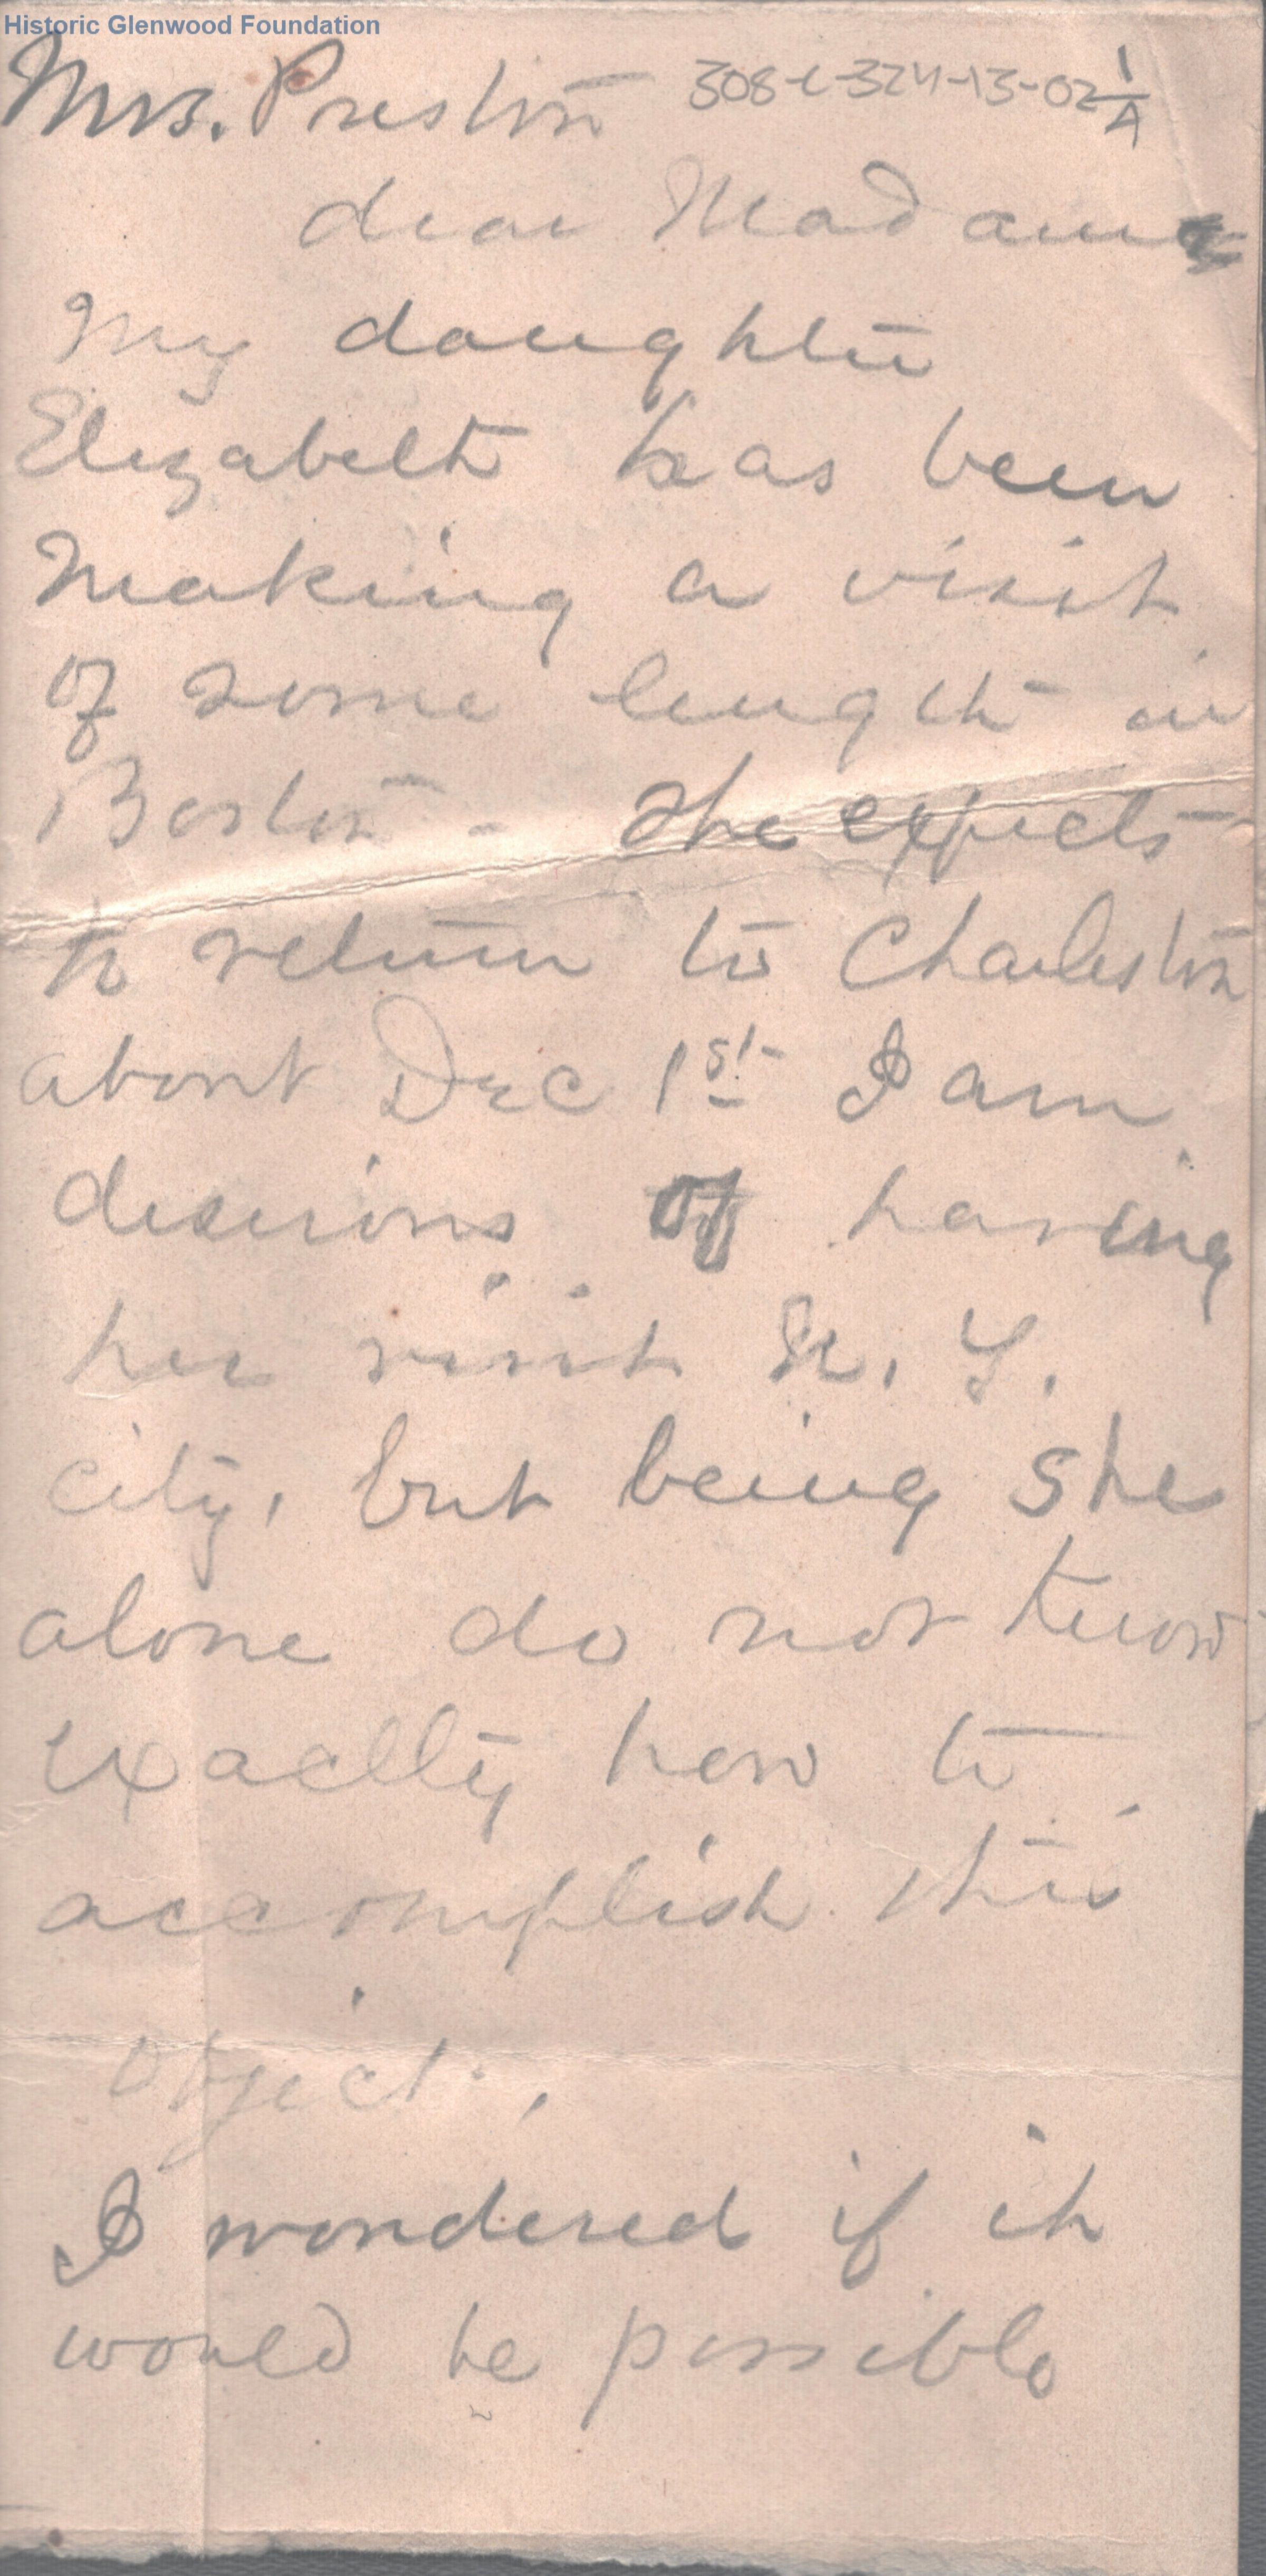 Historic Glenwood Foundation
Mrs. Preston 308-L-324-13-02 1/A
dear Madam
My daughter
Elizabeth has been
making a visit
of some length in
Boston - She expects
to return to Charleston
about Dec 1st I am
desirous of having
her visit N. Y.
city, but being she
alone do not know
exactly how to
accomplish this
object.
I wondered if it
would be possible